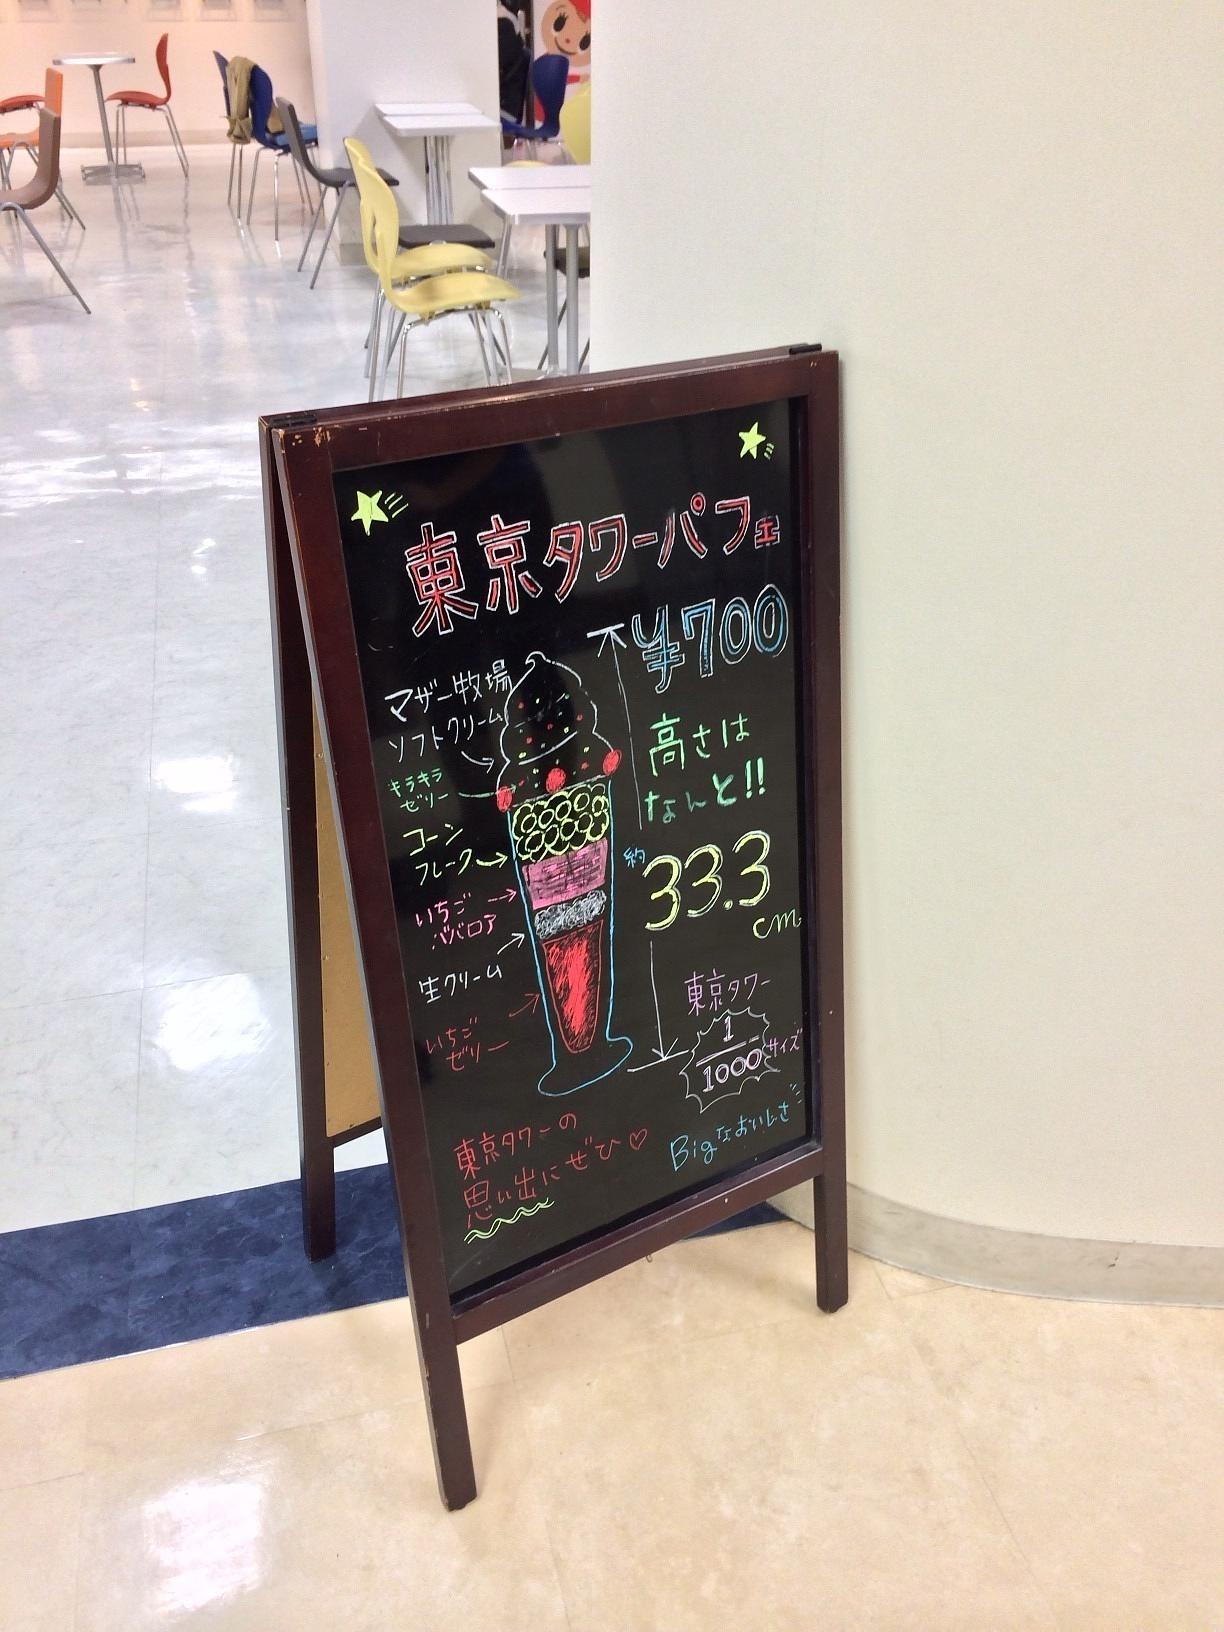 東京タワーパフェ
¥700
マザー牧場
ソフトクリーム
キラキラ
ゼリー
コーン
フレーク
いちご
ババロア
生クリーム
いちご
ゼリー
高さは
なんと!!
約
33.3
cm
東京タワー
1
1000 サイズ
東京タワーの
思い出にぜひ♡
Bigなおいしさ